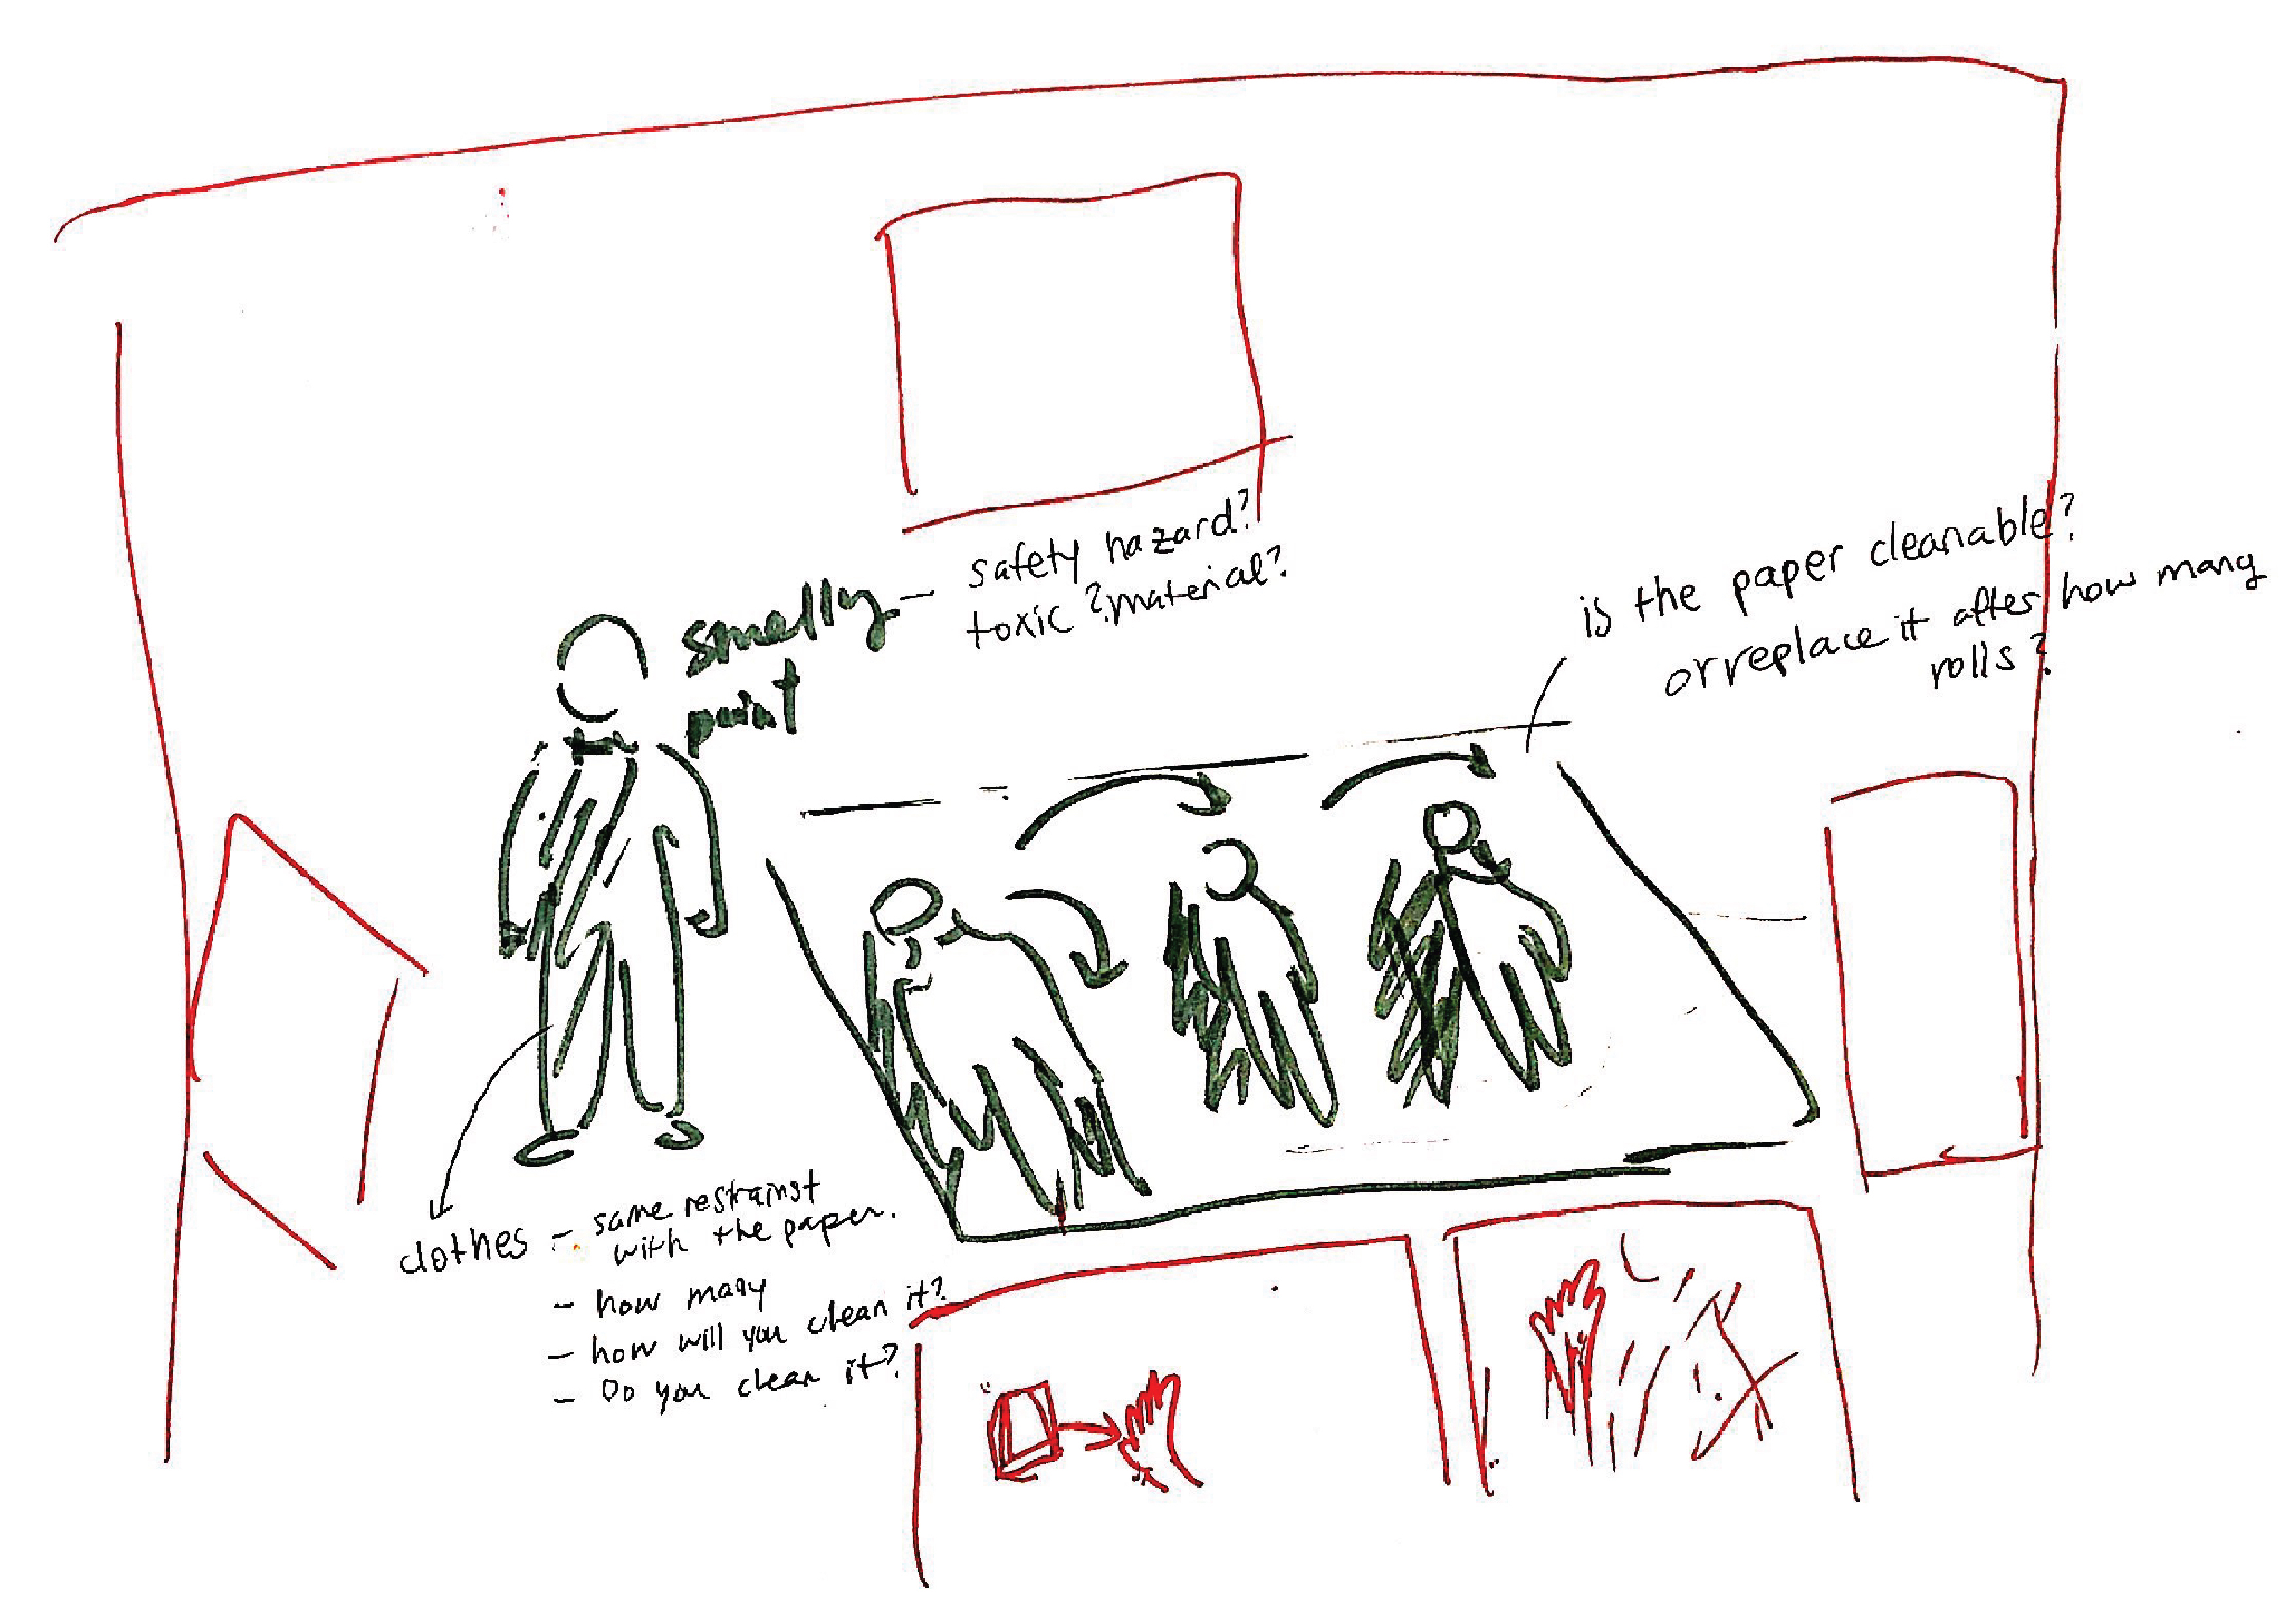 smelly
paint
— safety hazard?
toxic ? material?
is the paper cleanable?
or replace it after how many
rolls?
clothes – same restrainst
with the paper.
– how many
– how will you clean it?
– Do you clean it?